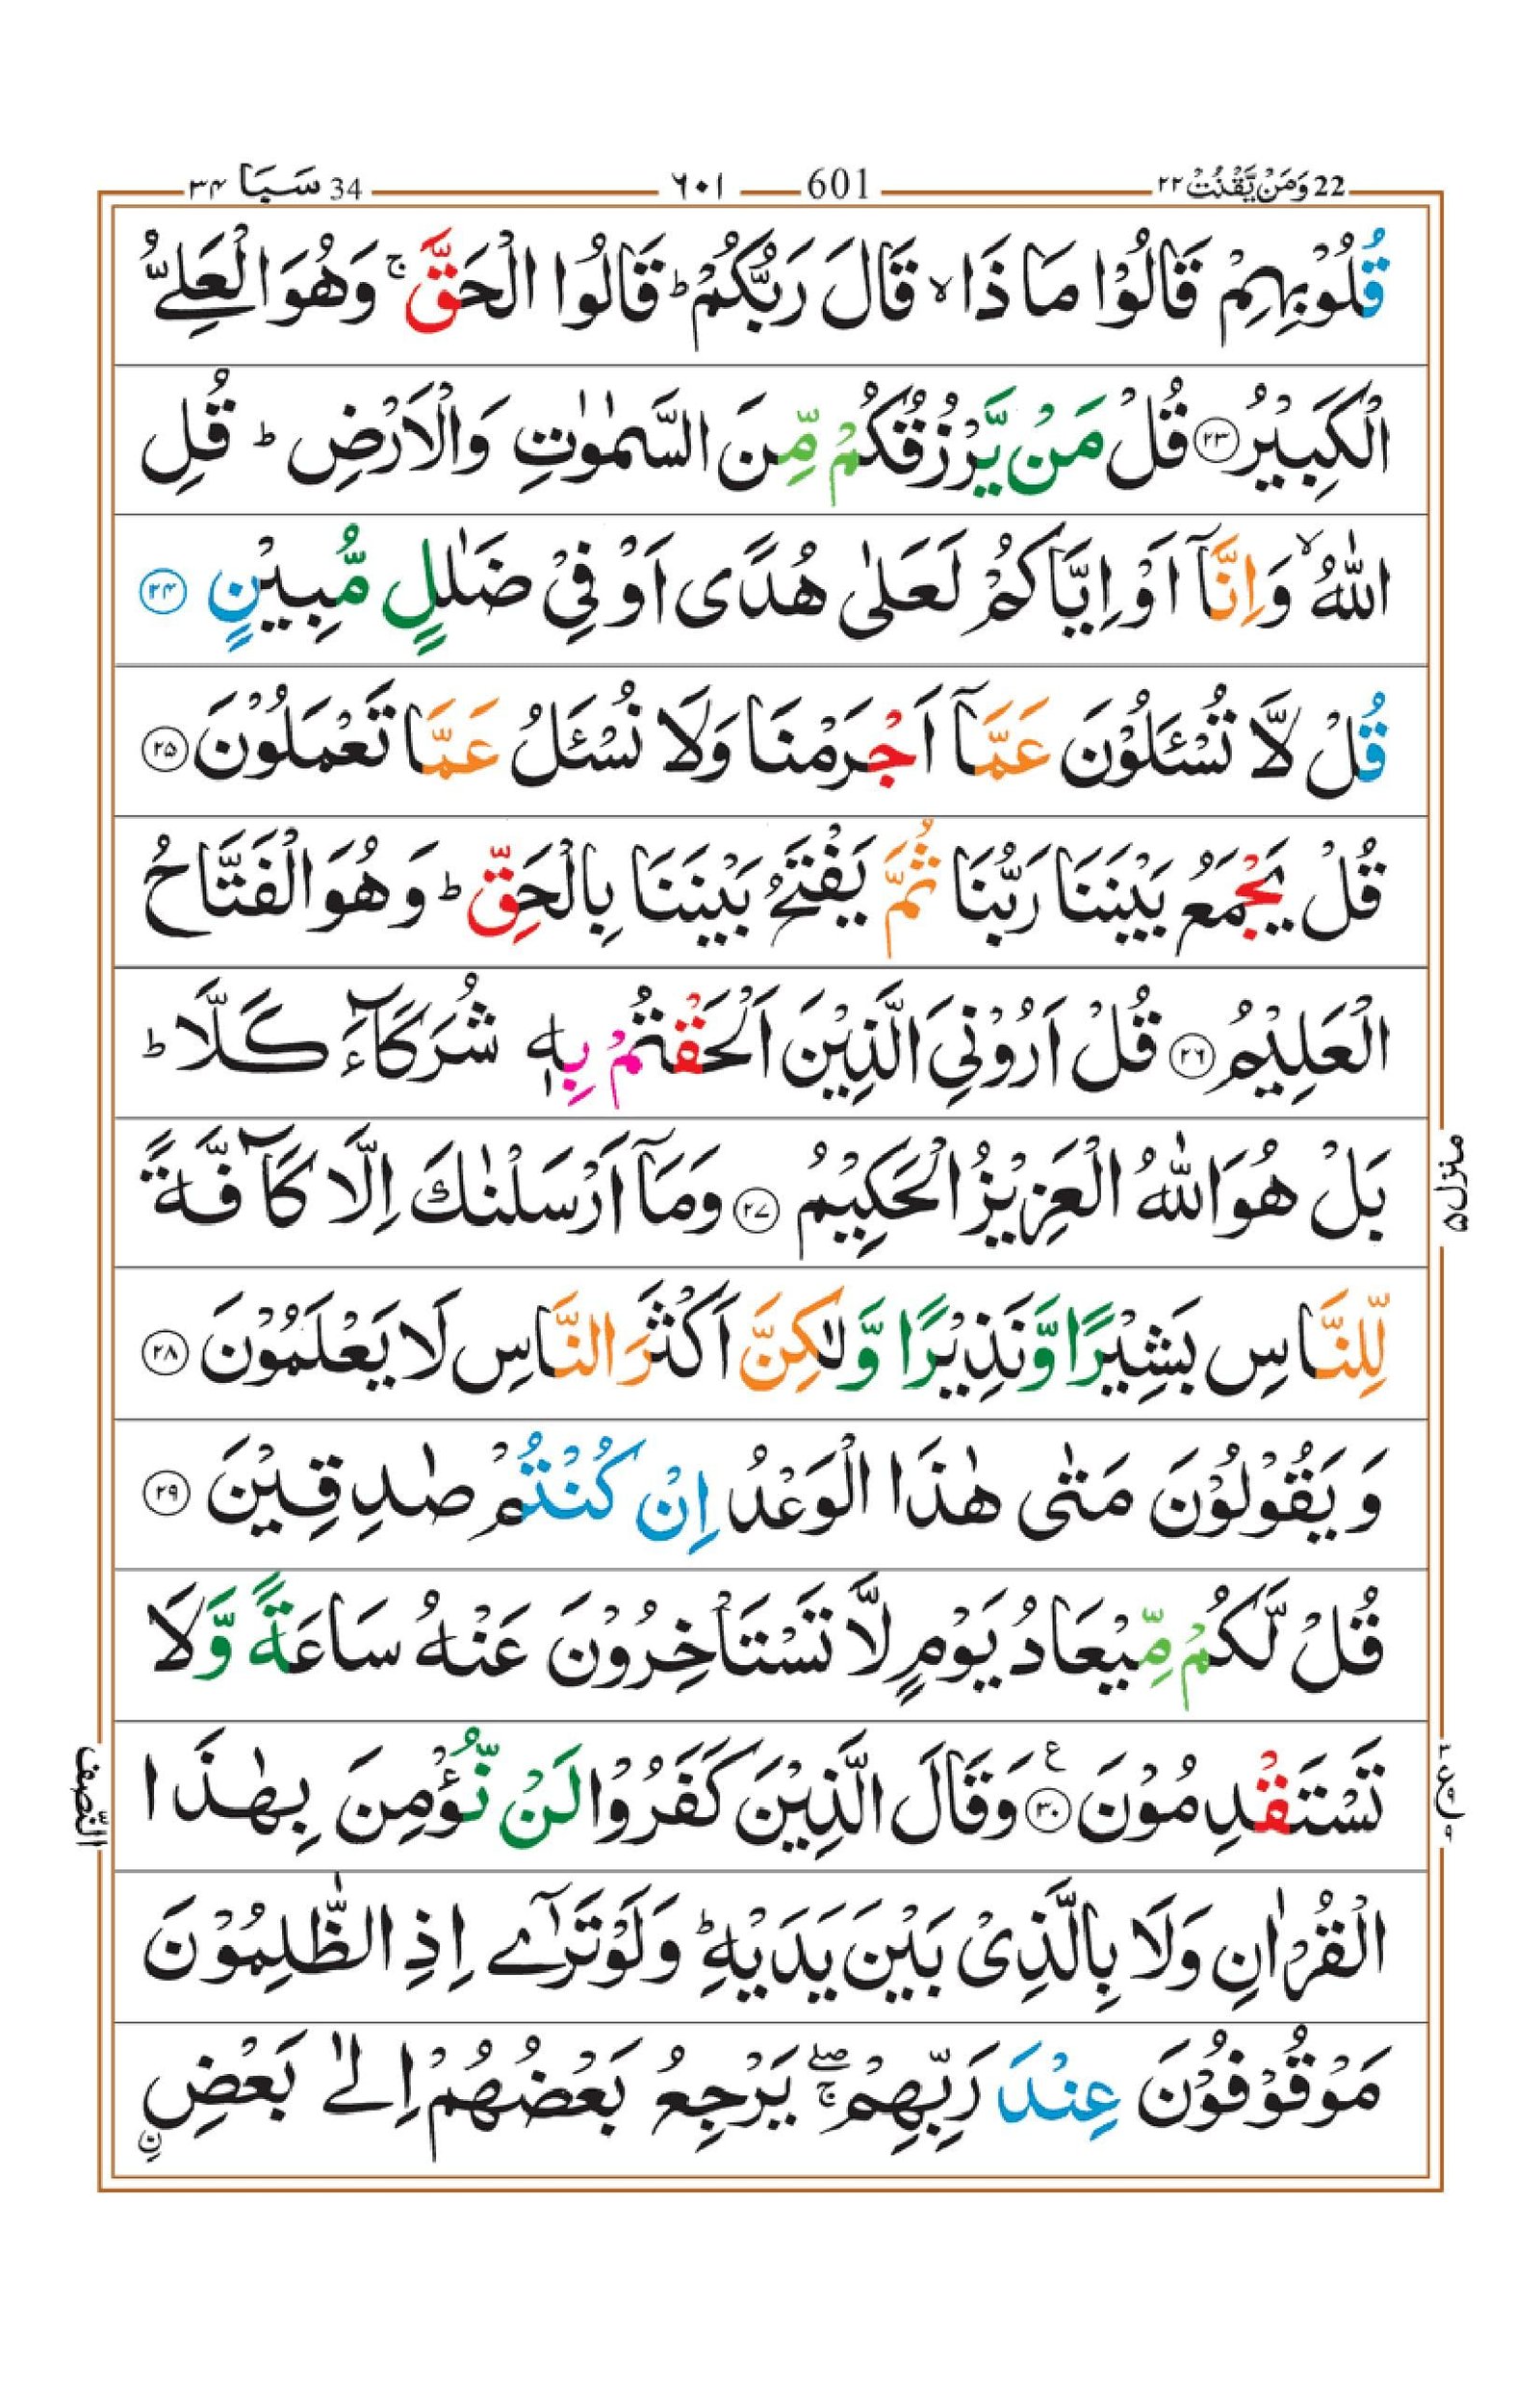 22 وَمَنْ يَّقْنُتْ ٢٢ 601 ٦٠١ 34 سَبَا ٣٤
قُلُوْبِهِمْ قَالُوْا مَا ذَا ۙ قَالَ رَبُّكُمْ ؕ قَالُوا الْحَقَّ ۚ وَهُوَ الْعَلِيُّ
الْكَبِيْرُ ﴿۲۳﴾ قُلْ مَنْ يَّرْزُقُكُمْ مِّنَ السَّمٰوٰتِ وَالْاَرْضِ ؕ قُلِ
اللّٰهُ ۙ وَاِنَّاۤ اَوْ اِيَّاكُمْ لَعَلٰى هُدًى اَوْ فِيْ ضَلٰلٍ مُّبِيْنٍ ﴿۲۴﴾
قُلْ لَّا تُسْـَٔلُوْنَ عَمَّاۤ اَجْرَمْنَا وَلَا نُسْـَٔلُ عَمَّا تَعْمَلُوْنَ ﴿۲۵﴾
قُلْ يَجْمَعُ بَيْنَنَا رَبُّنَا ثُمَّ يَفْتَحُ بَيْنَنَا بِالْحَقِّ ؕ وَهُوَ الْفَتَّاحُ
الْعَلِيْمُ ﴿۲۶﴾ قُلْ اَرُوْنِيَ الَّذِيْنَ اَلْحَقْتُمْ بِهٖ شُرَكَآءَ كَلَّا ؕ
بَلْ هُوَ اللّٰهُ الْعَزِيْزُ الْحَكِيْمُ ﴿۲۷﴾ وَمَاۤ اَرْسَلْنٰكَ اِلَّا كَآفَّةً
لِّلنَّاسِ بَشِيْرًا وَّنَذِيْرًا وَّلٰكِنَّ اَكْثَرَ النَّاسِ لَا يَعْلَمُوْنَ ﴿۲۸﴾
وَيَقُوْلُوْنَ مَتٰى هٰذَا الْوَعْدُ اِنْ كُنْتُمْ صٰدِقِيْنَ ﴿۲۹﴾
قُلْ لَّكُمْ مِّيْعَادُ يَوْمٍ لَّا تَسْتَاْخِرُوْنَ عَنْهُ سَاعَةً وَّلَا
تَسْتَقْدِمُوْنَ ﴿۳۰﴾ ع وَقَالَ الَّذِيْنَ كَفَرُوْا لَنْ نُّؤْمِنَ بِهٰذَا
الْقُرْاٰنِ وَلَا بِالَّذِىْ بَيْنَ يَدَيْهِ ؕ وَلَوْ تَرٰۤى اِذِ الظّٰلِمُوْنَ
مَوْقُوْفُوْنَ عِنْدَ رَبِّهِمْ ۖۚ يَرْجِعُ بَعْضُهُمْ اِلٰى بَعْضِ ن ِ
منزل ۵
النّصف